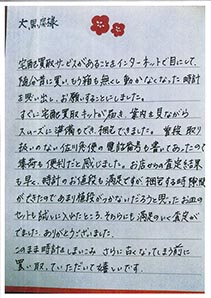 大黒屋様
宅配買取サービスがあることをインターネットで目にして、
随分昔に買いもう箱も無くし動かなくなった時計
を思い出し、お願いすることにしました。
すぐに宅配買取キットが届き、案内を見ながら
スムーズに準備もでき、梱包できました。普段取り
扱いのない佐川急便の電話番号も書いてあったので
集荷も便利だと感じました。お店からの査定結果
も早く、時計のお値段も満足ですが、梱包する時隙間
ができたのであまり値段がつかないだろうと思ったお皿の
セットも試しに入れたところ、そちらにも満足のいく査定が
でました。ありがとうございました。
このまま時計をしまいこみ、さらに古くなってしまう前に
買い取っていただいて嬉しいです。